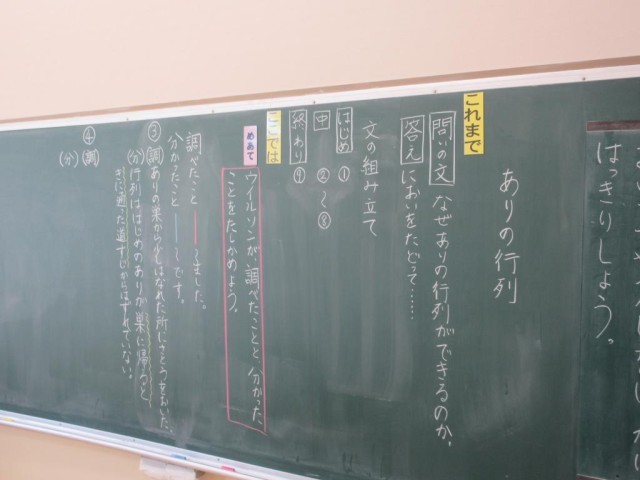 はっきりしよう。
ありの行列
これまで
問いの文 なぜありの行列ができるのか。
答え においをたどって……
文の組み立て
はじめ ①
中 ②〜⑧
終わり ⑨
ここでは
めあて
ウイルソンが調べたことと分かった
ことをたしかめよう。
調べたこと ―― 〜ました。
分かったこと ―― 〜です。
③
(調)ありの巣から少しはなれた所にさとうをおいた。
(分)行列は、はじめのありが巣に帰るときに通った道すじからはずれていない。
④
(調)
(分)